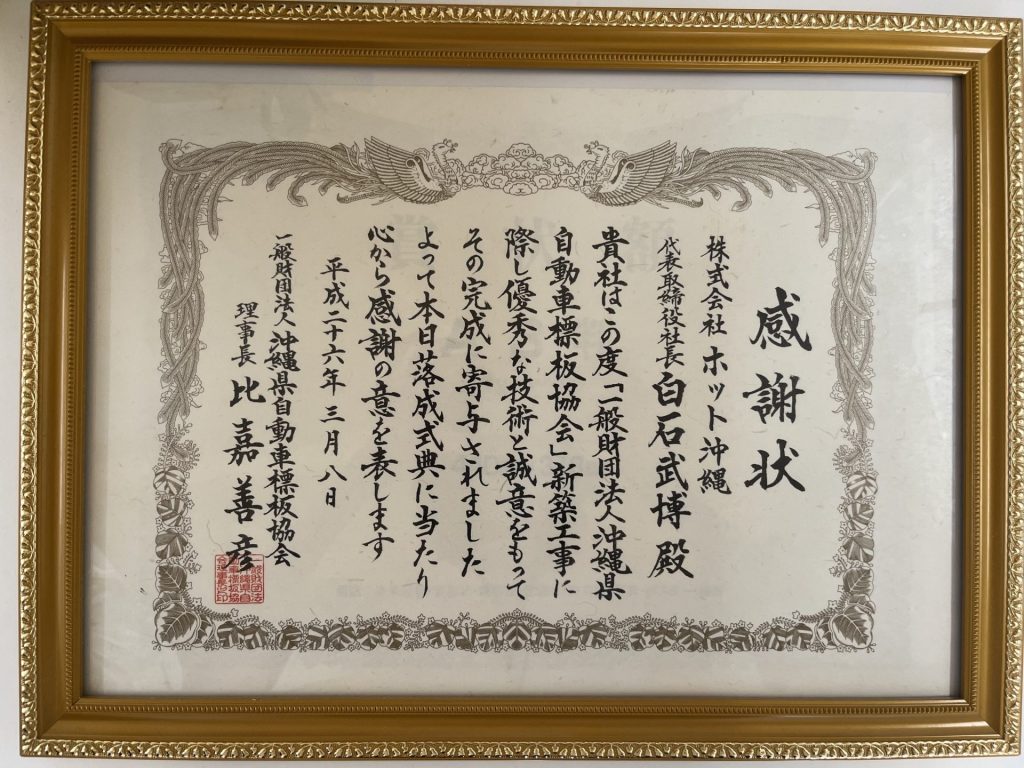 感謝状
株式会社 ホット沖縄
代表取締役社長 白石武博 殿
貴社はこの度「一般財団法人沖縄県
自動車標板協会」新築工事に
際し優秀な技術と誠意をもって
その完成に寄与されました
よって本日落成式典に当たり
心から感謝の意を表します
平成二十六年 三月八日
一般財団法人 沖縄県自動車標板協会
理事長 比嘉善彦